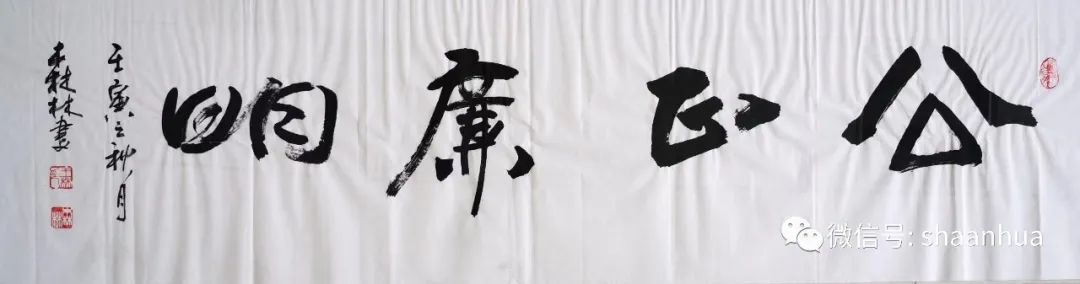 公正廉明
壬寅之秋月
森林書
微信号: shaanhua